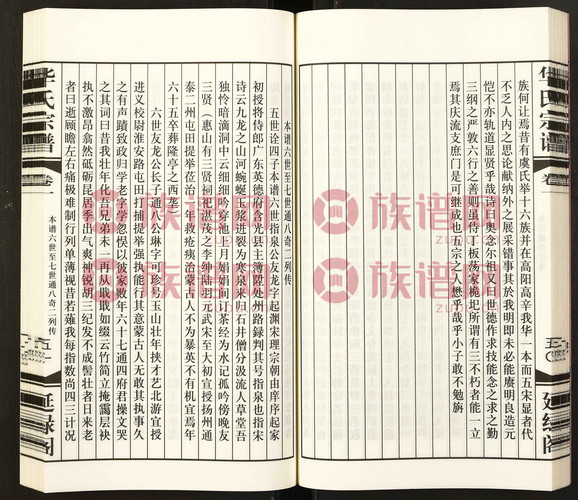 族何让焉昔有虞氏举十六族并在高阳高辛我华一本而五宋显者代
不乏人内之思论献纳外之展采错事其於我明即未必能赓明良造元
恺不亦轨道显贤乎哉诗曰奥念尔祖又曰世德作求技能念之求之勤
三纲之严敦六行之善则虽侍丁板荡家桅圯所谓有三不朽者能一立
焉其庆流支庶门是可继成也五宗之人懋乎哉乎小子敢不勉旃
华氏宗谱
卷一
延绿阁
本谱六世至七世通八奇二列传
五世诠四子本谱六世指泉公友龙字起渊宋理宗朝由庠序起家
初授将侍郎广东英德府含光县主簿陞处州路録判其号指泉也指宋
诗云九龙之山河蜿蜒玉浆进裂为寒泉来归石井僧分汲流人草堂吾
独怜暗滴涧中云细细吟穿池上月娟娟间订茶经为水记孤吟傍晚友
三贤（惠山有三贤祠祀湛茂之李绅陆羽元武宋至大初宣授扬州通
泰二州屯田提举莅治一年救疮痍治蒙古人不为暴英不有机宜焉年
六十五卒葬隆亭之西垄）
六世友龙公长子通八公琳字可珍号玉山壮年挟才艺北游宣授
进义校尉淮安路屯田打捕提举强执能行其意蒙古人无敢其执事久
之有声蹟致政归学老子学忽悮以彼家败年六十七通四府君操文哭
之其词曰昔我壮年化吾兄弟未一再从戢戢如缀云竹简立掩靄层袂
执不激昂翕然砥砺昆居季出气爽神锐胡三纪发不成髻壮者日来老
者日逝顾瞻左右痛极难制行列单薄视昔若薙我每指数尚四三计况
华氏宗谱
卷一
本谱六世至七世通八奇二列传
五一
延绿阁
族谱网
族谱网